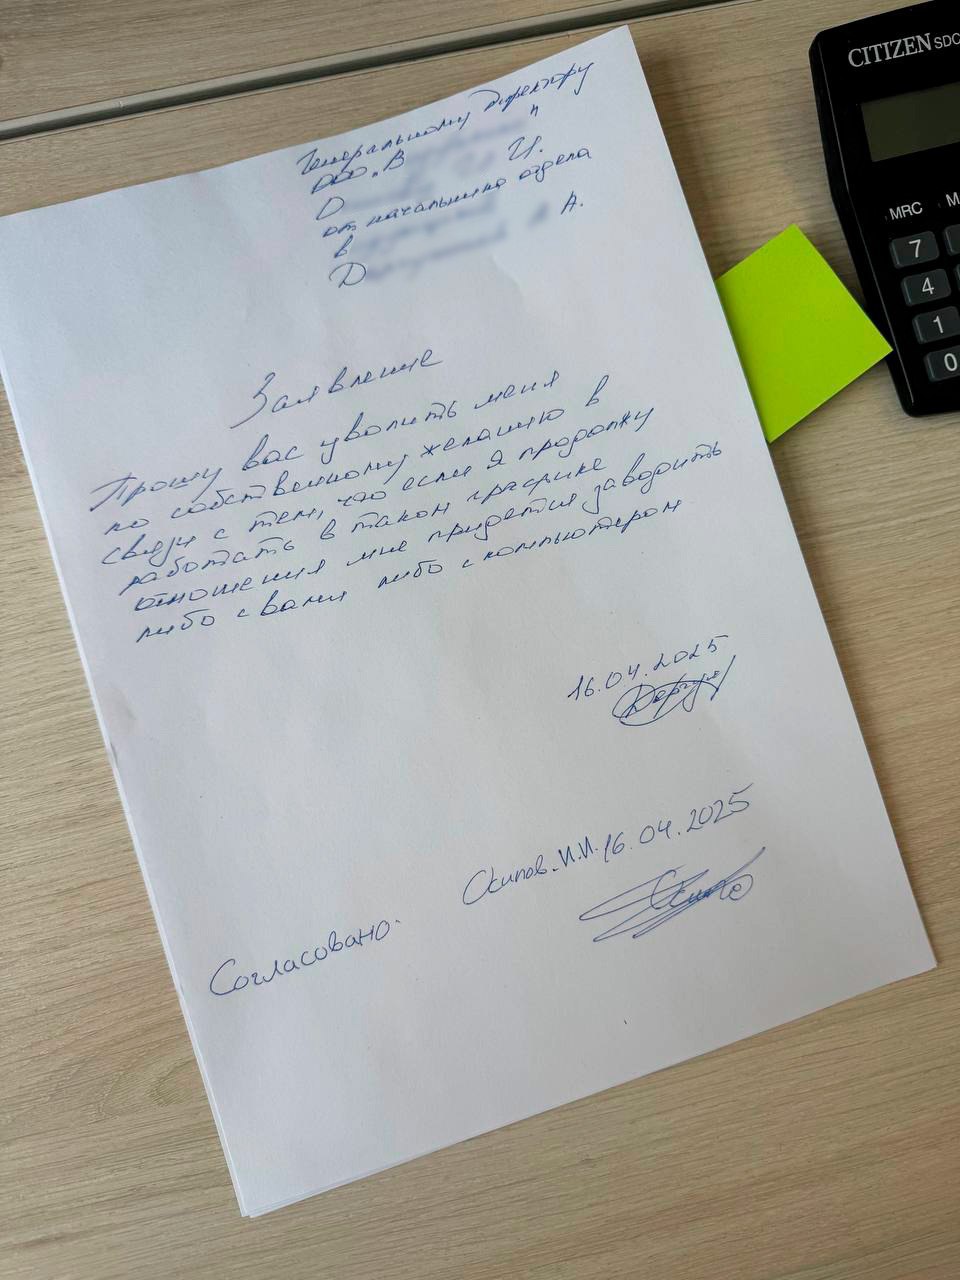 Генеральному директору
ООО „В "
О И.
от начальника отдела
в
Д А.
Заявление
Прошу вас уволить меня
по собственному желанию в
связи с тем, что если я продолжу
работать в таком графике
отношения мне придется заводить
либо с вами либо с компьютером
16.04.2025
Согласовано. Осипов И.И. 16.04.2025
CITIZEN SDC
MRC M
7
4
1
0